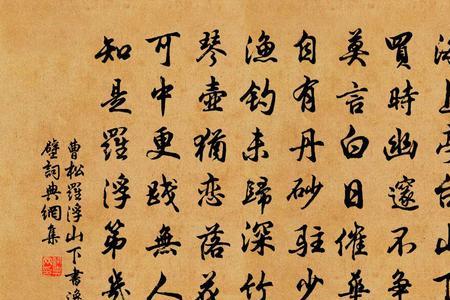 海上亭台山下
買時幽邃不爭
莫言白日催華
自有丹砂駐少
漁釣未歸深竹
琴壺猶戀落花
可中更踐無人
知是羅浮第幾
曹松羅浮山下書逸
壁詞典網集